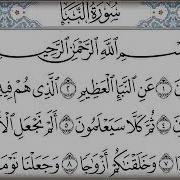 سُورَةُ النَّبَإِ
ـسْمِ ٱللَّهِ ٱلرَّحْمَٰنِ ٱلرَّحِيمِ
١ عَنِ ٱلنَّبَإِ ٱلْعَظِيمِ ٢ ٱلَّذِى هُمْ فِيهِ
٤ ثُمَّ كَلَّا سَيَعْلَمُونَ ٥ أَلَمْ نَجْعَلِ ٱلْأَ
٧ وَخَلَقْنَٰكُمْ أَزْوَٰجًا ٨ وَجَعَلْنَا نَوْمَـ